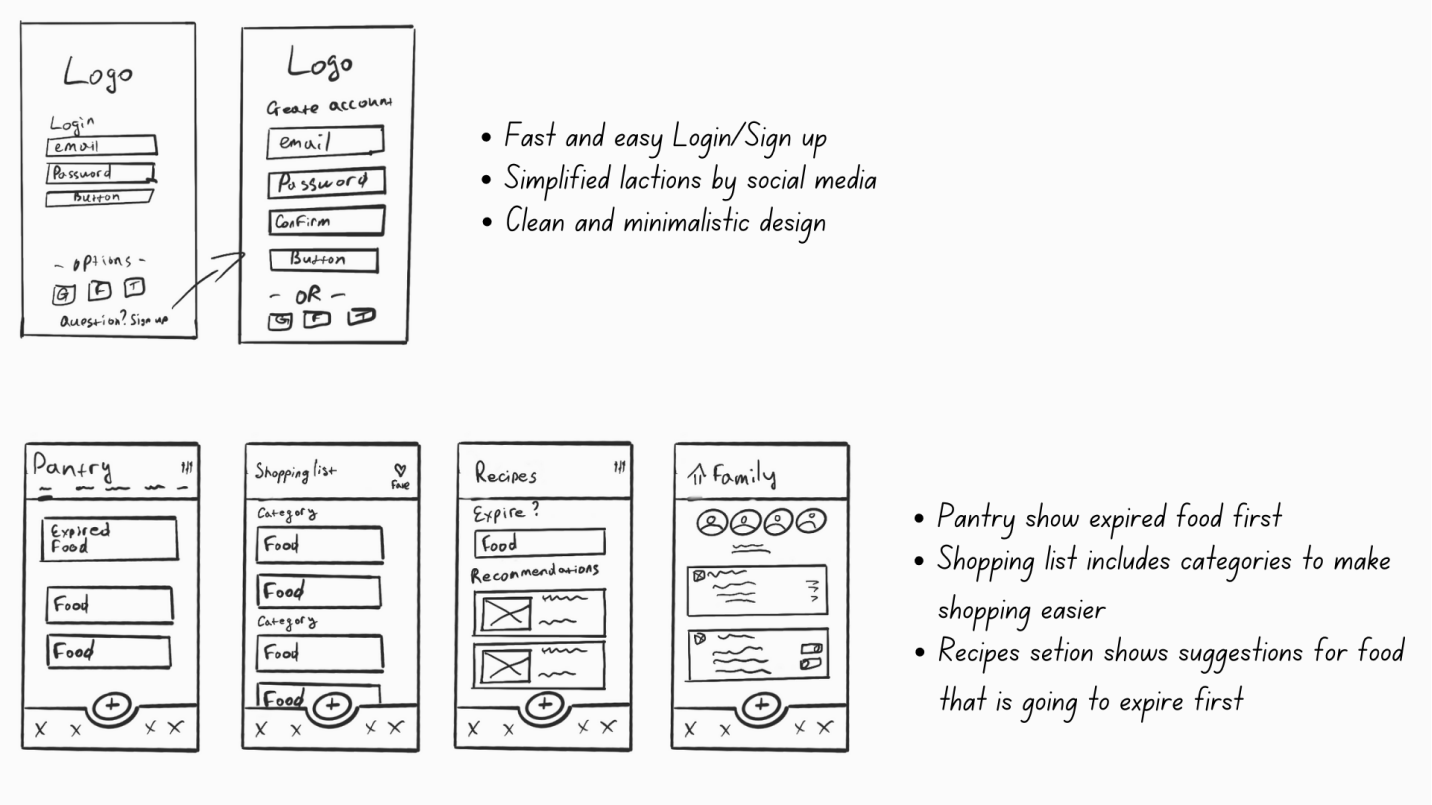 Logo
Login
email
Password
Button
- options -
G F T
Question? Sign up
Logo
Create account
email
Password
Confirm
Button
- OR -
G F T
• Fast and easy Login/Sign up
• Simplified lactions by social media
• Clean and minimalistic design
Pantry
Expired
Food
Food
Food
+
X X X X
Shopping list
Fave
Category
Food
Food
Category
Food
Food
+
X X X X
Recipes
Expire?
Food
Recommendations
+
X X X X
Family
+
X X X X
• Pantry show expired food first
• Shopping list includes categories to make
shopping easier
• Recipes setion shows suggestions for food
that is going to expire first